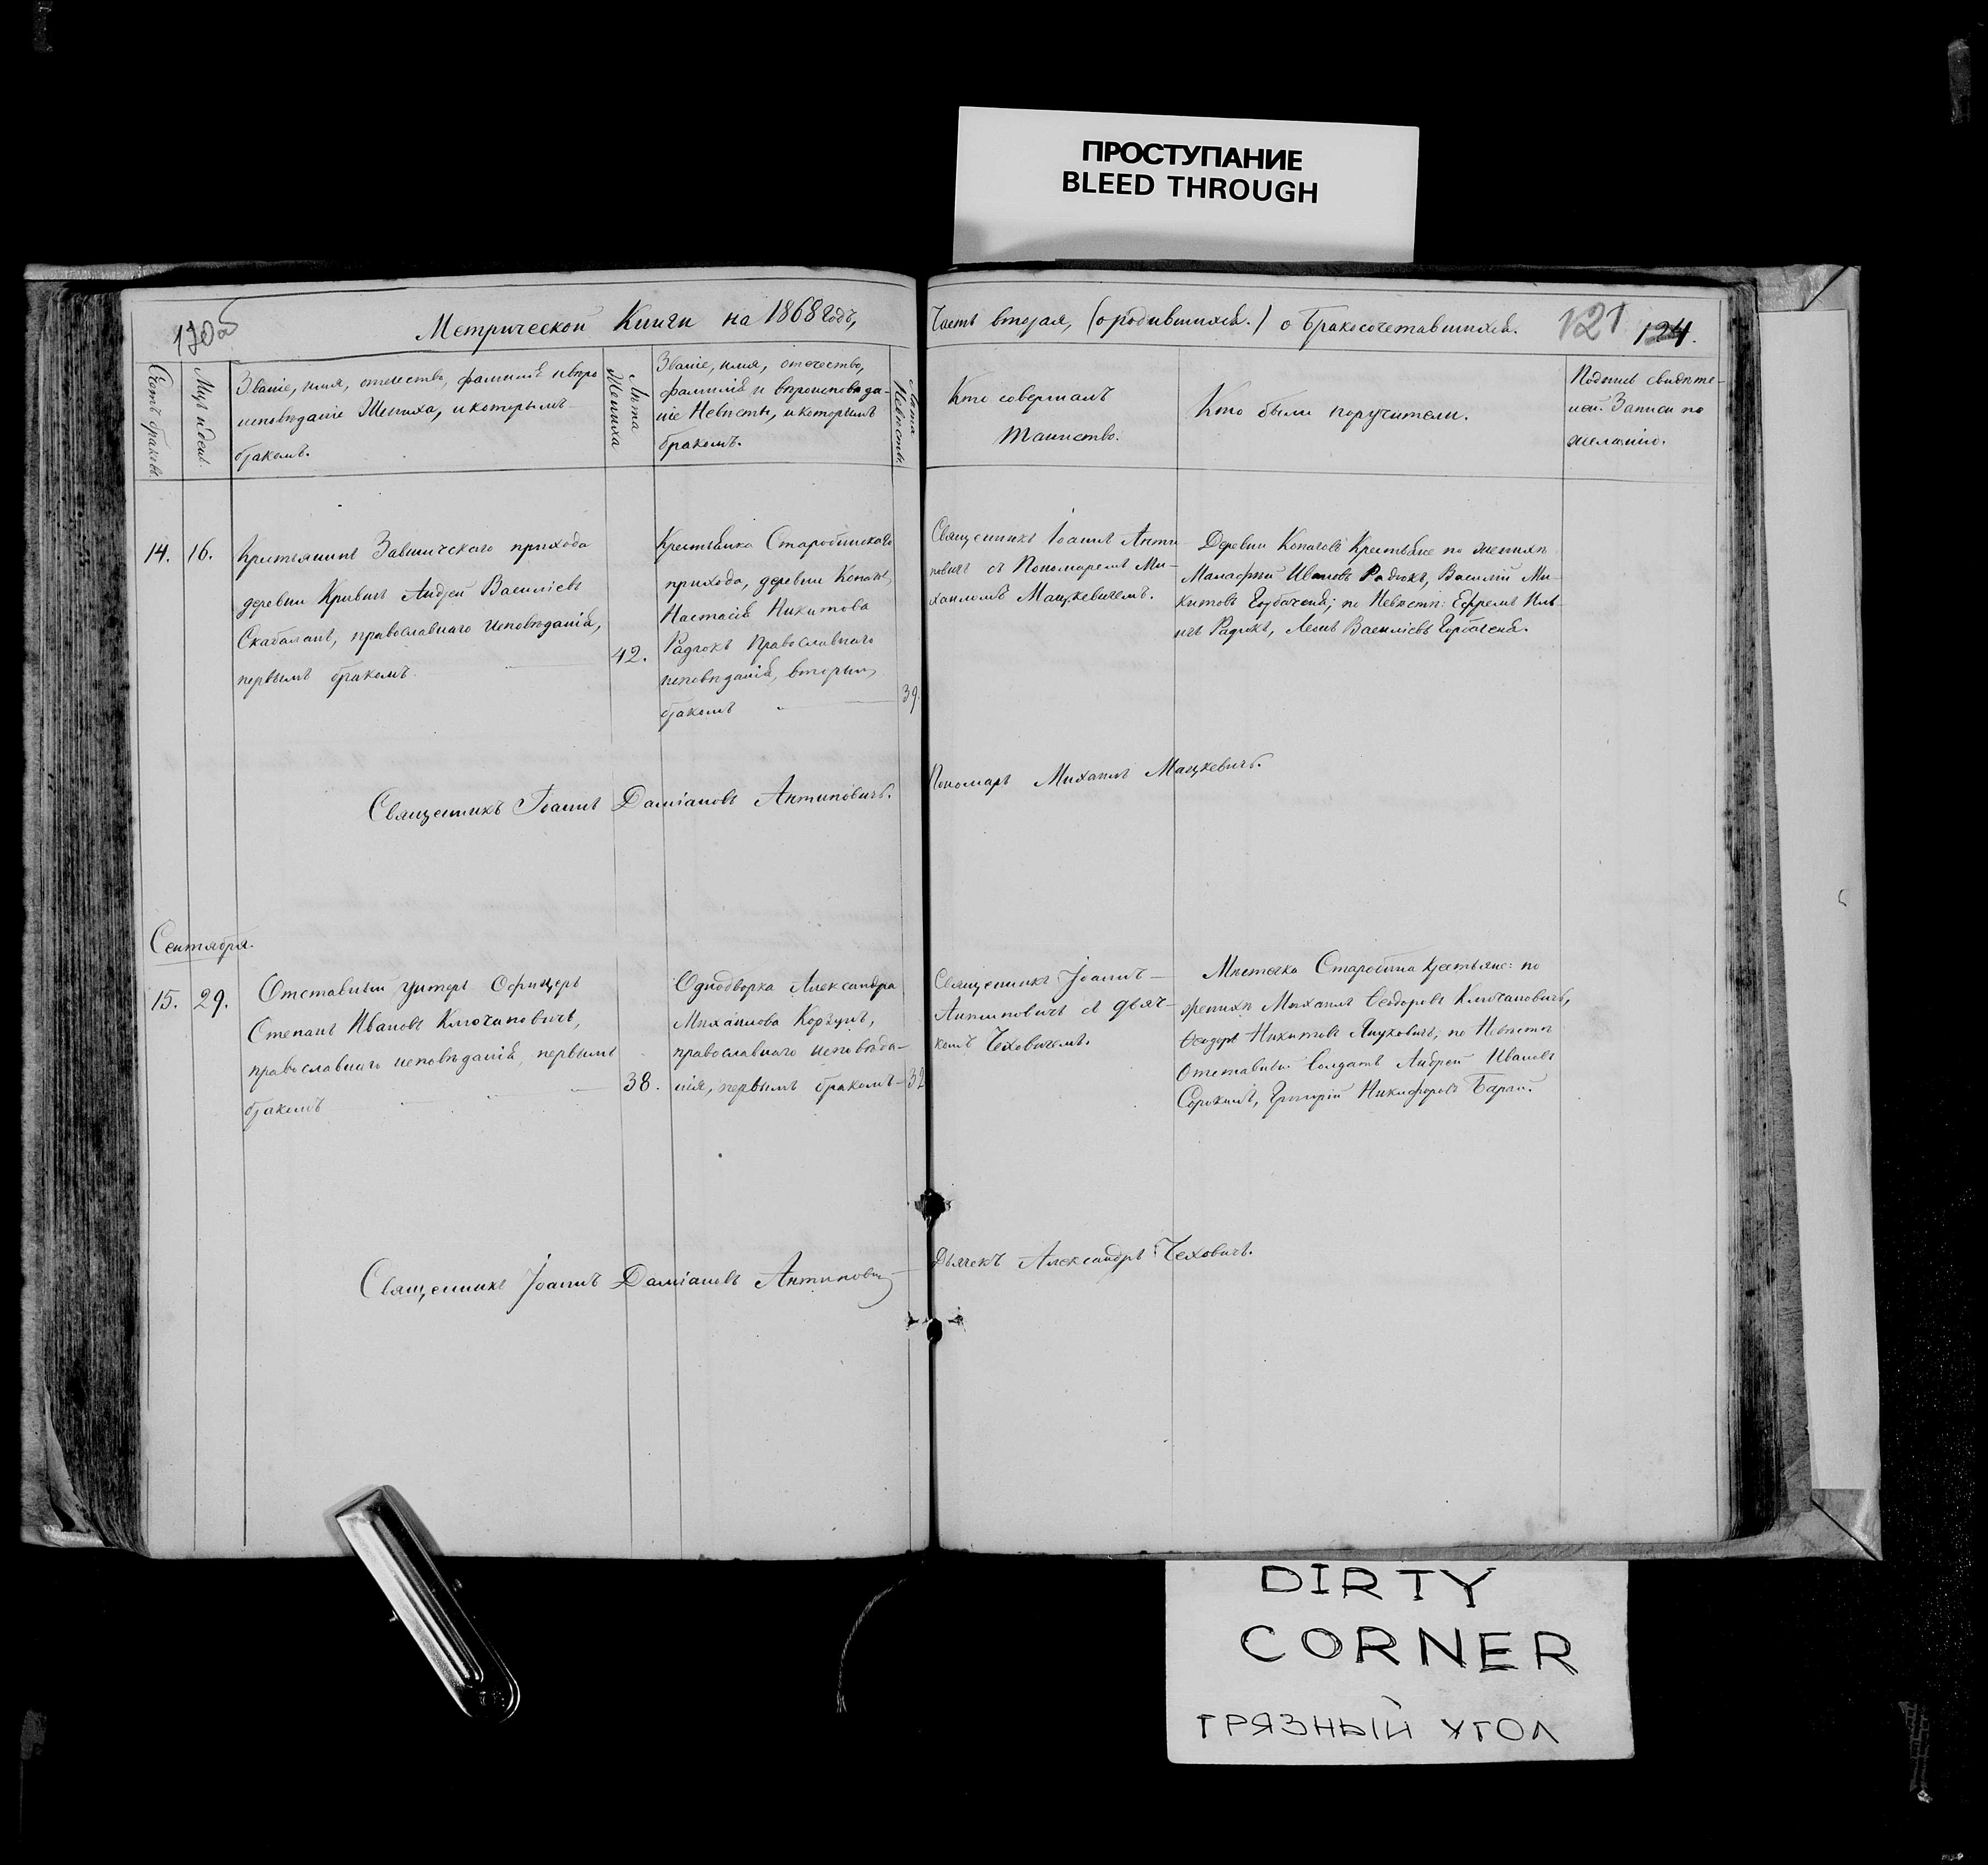 ПРОСТУПАНИЕ
BLEED THROUGH
Метрической Книги на 1868 годъ,
Часть вторая, (о родившихся.) о бракосочетавшихся.
121 124.
Счетъ браковъ.
Мѣс. и день.
Званіе, имя, отечество, фамилія и вѣро
исповѣданіе Жениха, и которымъ
бракомъ.
Лѣта Жениха
Званіе, имя, отечество,
фамилія и вѣроисповѣда-
ніе Невѣсты, и которымъ
бракомъ.
Лѣта Невѣсты.
Кто совершалъ
таинство.
Кто были поручители.
Подпись свидѣте-
лей. Записи по
желанію.
14. 16.
Крестьянинъ Завшичскаго прихода
деревни Кривичъ Андрей Василіевъ
Скабаланъ, православнаго исповѣданія,
первымъ бракомъ
42.
Крестьянка Старобинскаго
прихода, деревни
Настасія Никитова
Радюкъ Православнаго
исповѣданія, вторымъ
бракомъ
39.
Священникъ Іоаннъ Анти-
повичъ съ Пономаремъ Ми-
хаиломъ Мацкевичемъ.
Деревни Крестьяне по женихѣ
Ивановъ Радюкъ, Василій Ми-
китовъ по Невѣстѣ: Ефремъ Иль-
ичъ Радюкъ, Леонъ Василіевъ
Священникъ Іоаннъ Даміановъ Антиповичъ.
Пономарь Михаилъ Мацкевичъ.
Сентября.
15. 29.
Отставный Унтеръ Офицеръ
Степанъ Ивановъ Ключановичъ,
православнаго исповѣданія, первымъ
бракомъ
38.
Однодворка Александра
Михаилова Корзунъ,
православнаго исповѣда-
нія, первымъ бракомъ
32
Священникъ Іоаннъ
Антиповичъ съ дьяч-
комъ Чеховичемъ.
Мѣстечка Старобина крестьяне: по
женихѣ Михаилъ Ѳедоровъ Ключановичъ,
Ѳеодоръ Никитовъ Януковичъ, по Невѣстѣ
Отставный Солдатъ Андрей Ивановъ
Сорокинъ, Григорій Никифоровъ Барай.
Священникъ Іоаннъ Даміановъ Антиповичъ
Дьячекъ Александръ Чеховичъ.
DIRTY
CORNER
ГРЯЗНЫЙ УГОЛ